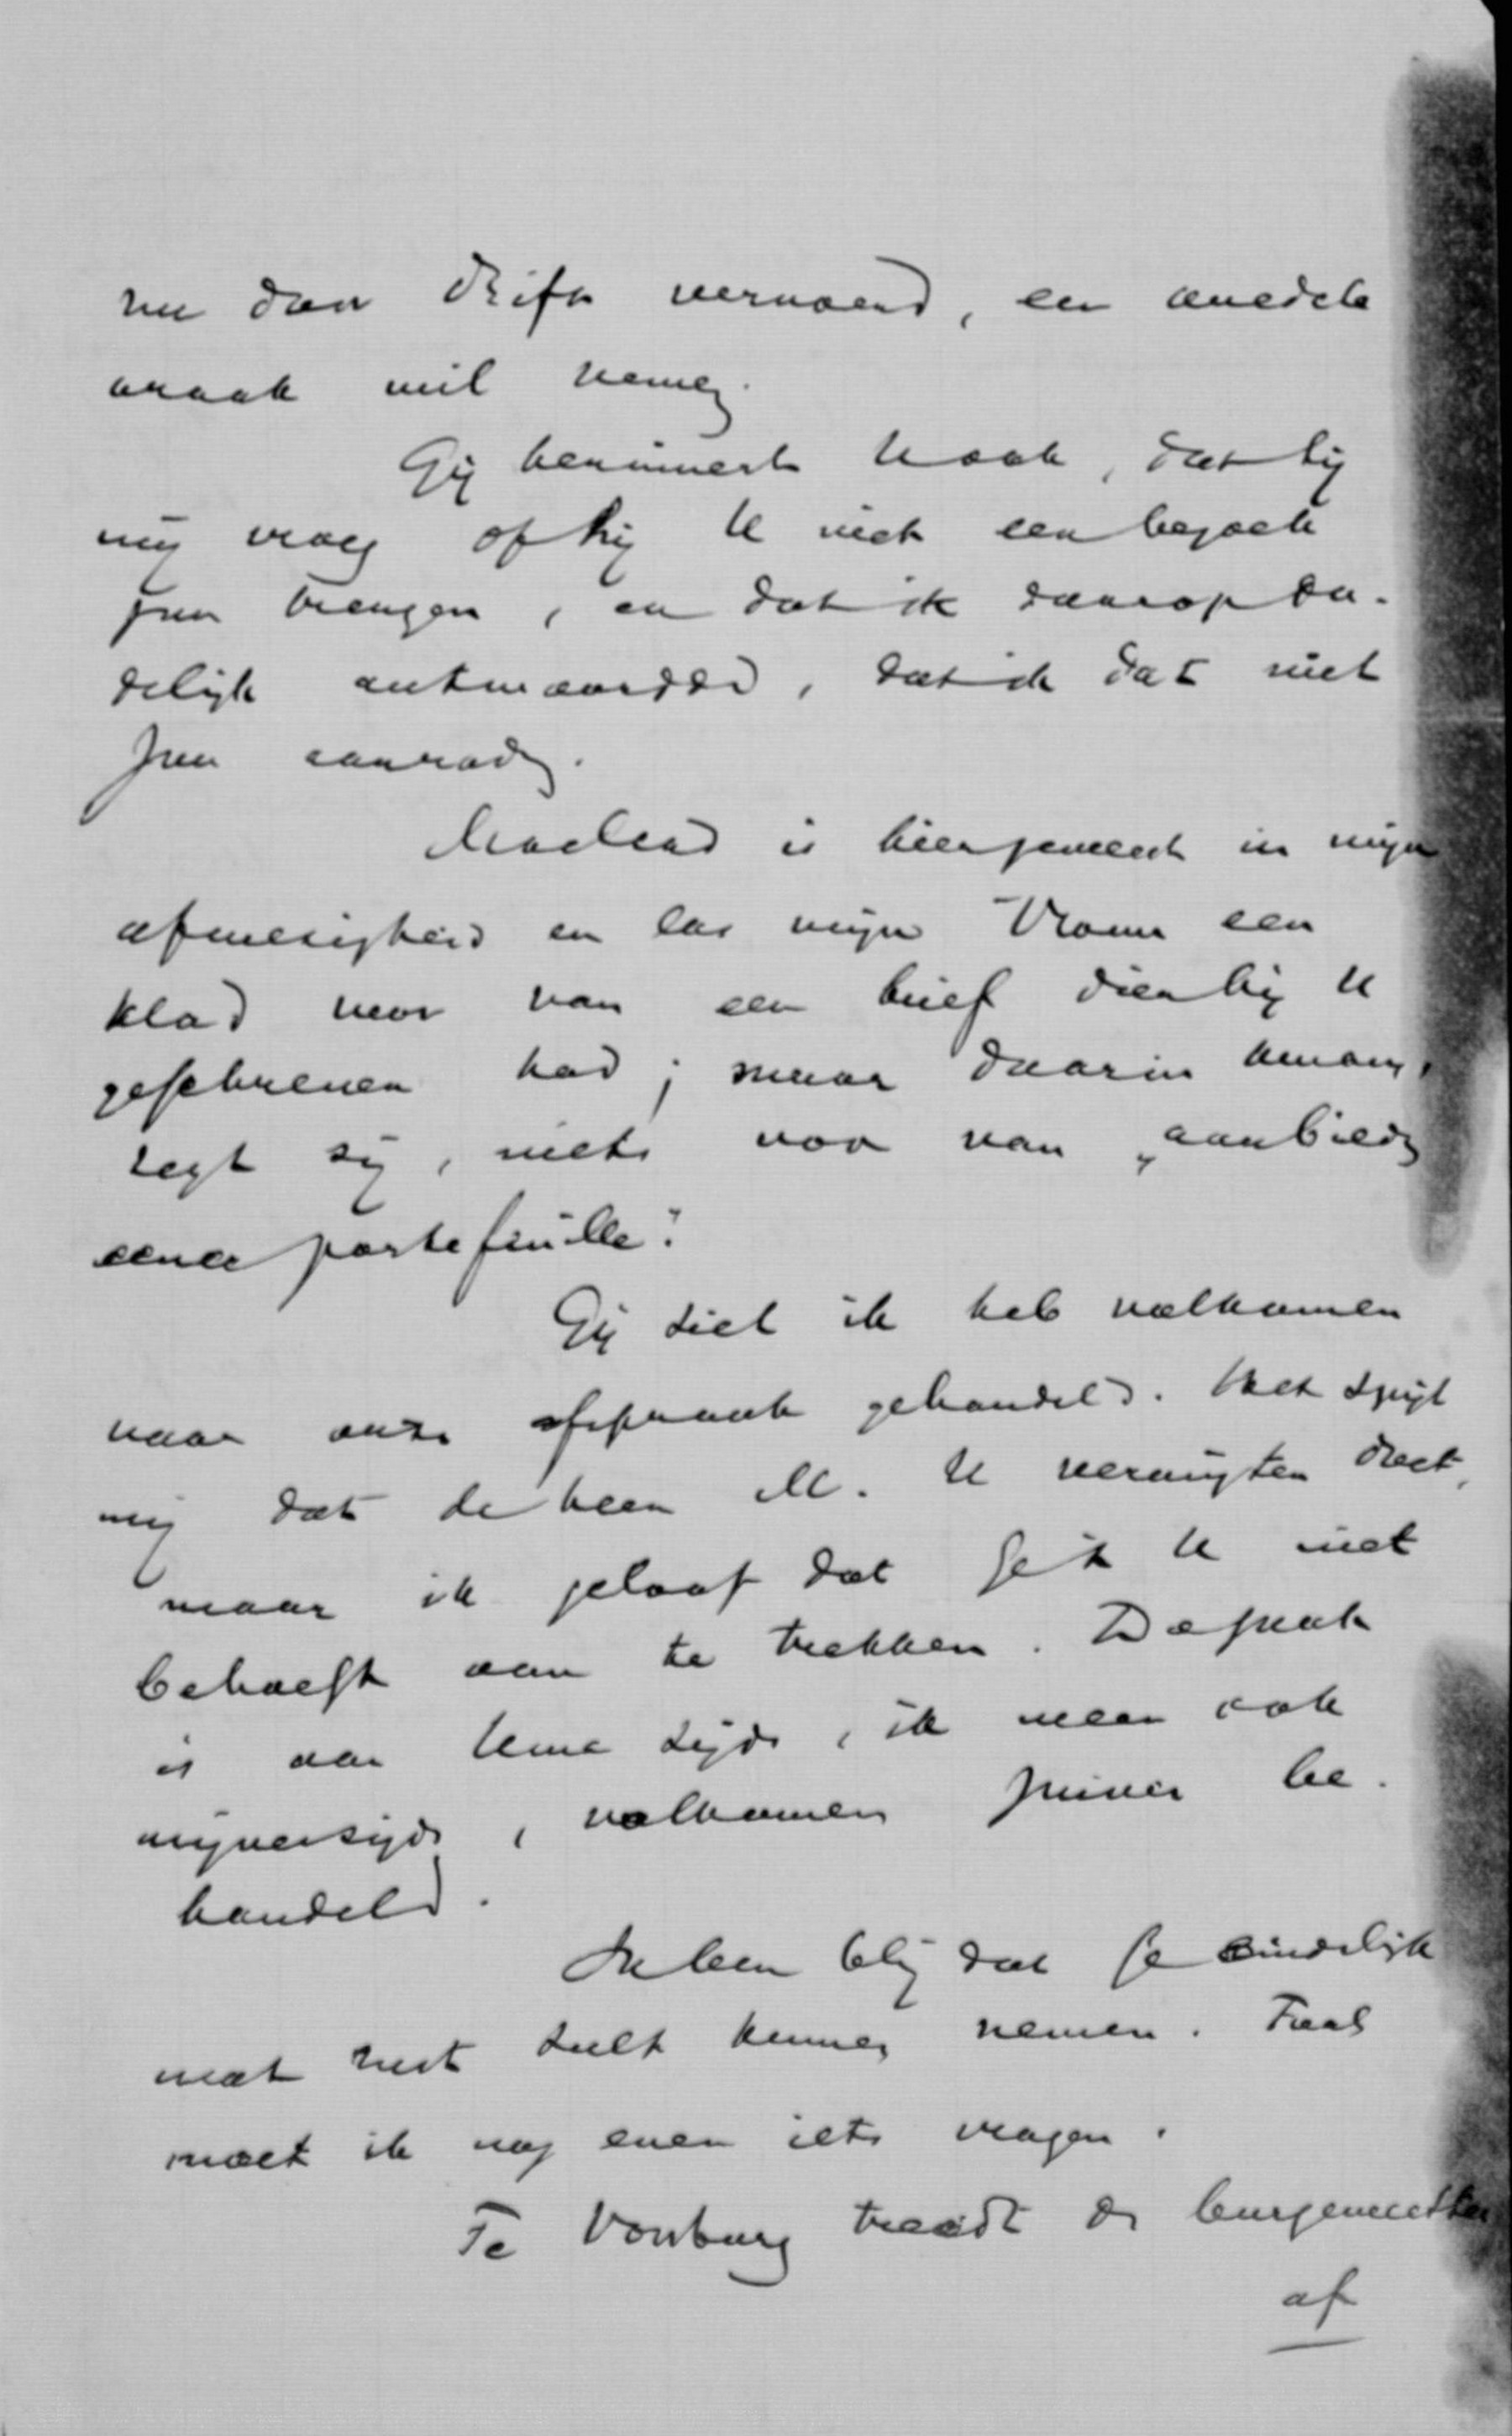 nu dan drift vervoerd, een onedele
wraak wil nemen.
Gij herinnert U ook, dat hij
mij vroeg of hij U niet een bezoek
zou brengen, en dat ik daarop da-
delijk antwoordde, dat ik dat niet
zou aanraden.
is hier geweest in mijn
afwezigheid en las mijn vrouw een
klad voor van een brief dien hij U
geschreven had; maar daarin kwam,
zegt zij, niets voor van „aanbieden
eener portefeuille".
Gij ziet ik heb volkomen
naar onze afspraak gehandeld. Het spijt
mij dat de heer M. U verdriet deed,
maar ik geloof dat je 't U niet
behoeft aan te trekken. De zaak
is van Uwe zijde, ik meen ook
mijnerzijds, volkomen zuiver be-
handeld.
Ik ben blij dat je eindelijk
wat rust zult kunnen nemen. Toch
moet ik nog even iets vragen.
Te Voorburg treedt de burgemeester
af